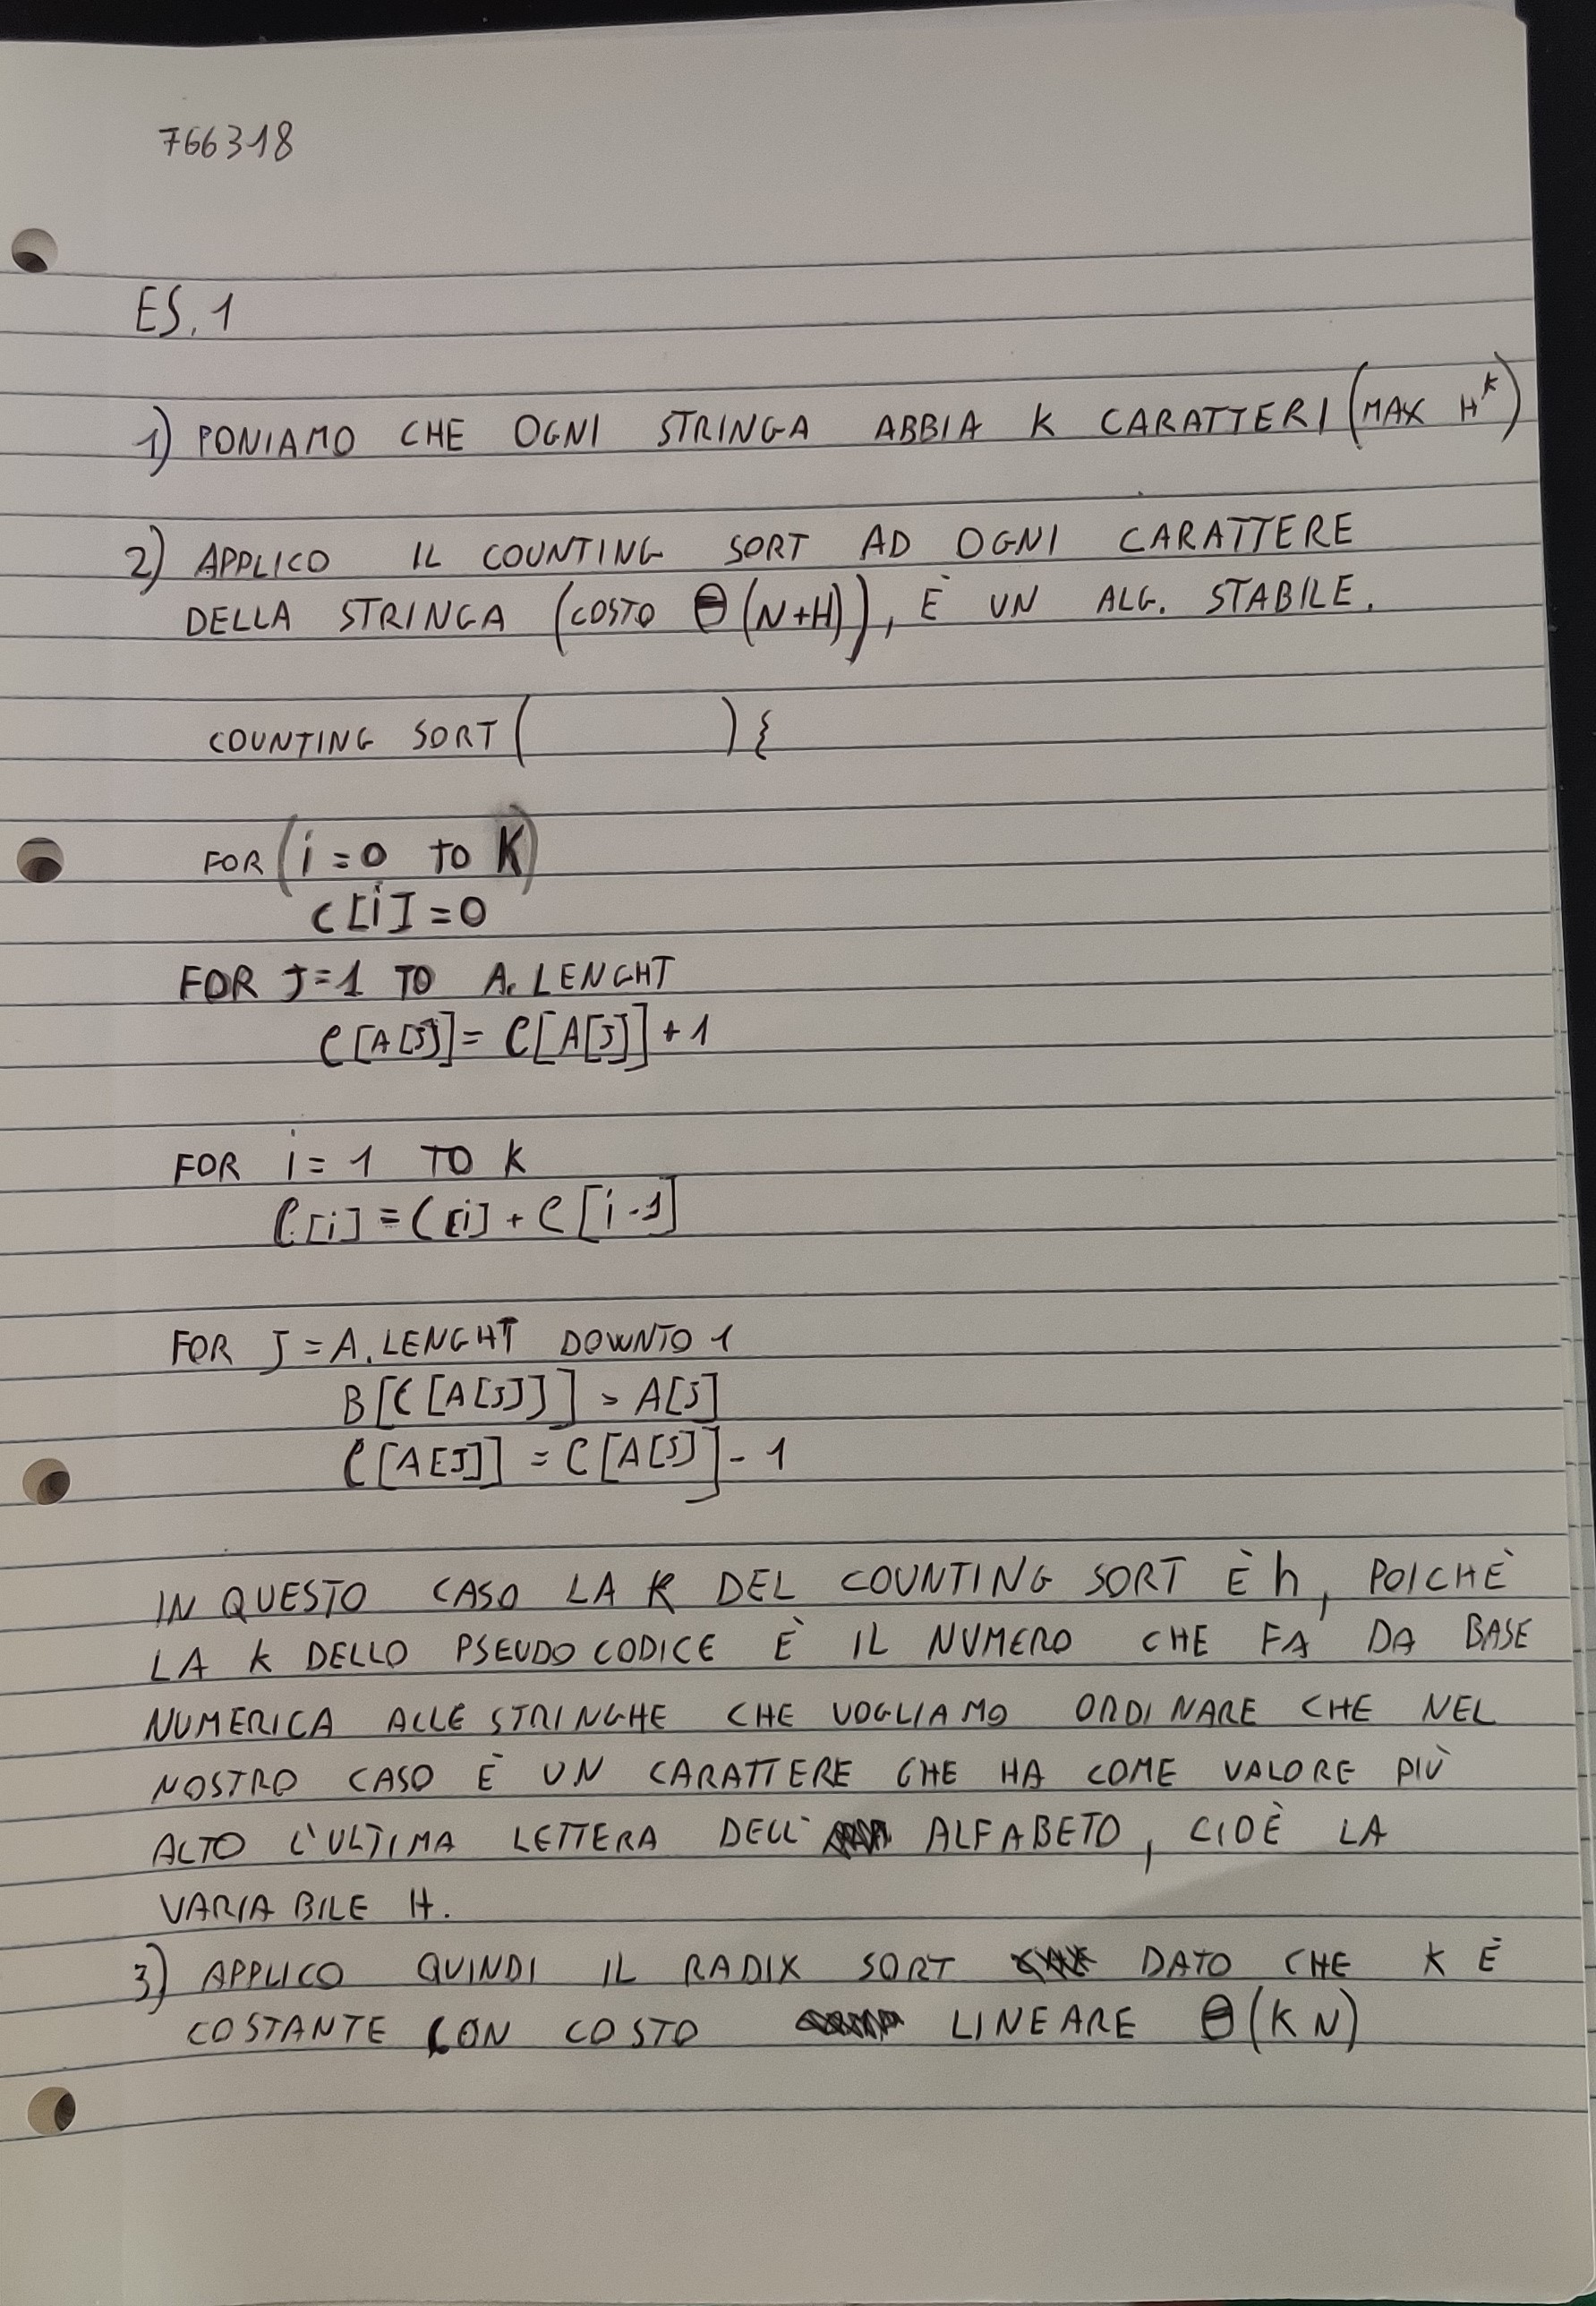 766318
ES. 1
1) PONIAMO CHE OGNI STRINGA ABBIA K CARATTERI (MAX H^K)
2) APPLICO IL COUNTING SORT AD OGNI CARATTERE
DELLA STRINGA (COSTO Θ(N+H)), È UN ALG. STABILE.
COUNTING SORT( ) {
FOR (i=0 TO K)
C[i]=0
FOR J=1 TO A.LENGHT
C[A[J]]= C[A[J]]+1
FOR i=1 TO K
C[i]=C[i]+C[i-1]
FOR J=A.LENGHT DOWNTO 1
B[C[A[J]]] = A[J]
C[A[J]] = C[A[J]]-1
IN QUESTO CASO LA K DEL COUNTING SORT È h, POICHÈ
LA K DELLO PSEUDOCODICE È IL NUMERO CHE FA DA BASE
NUMERICA ALLE STRINGHE CHE VOGLIAMO ORDINARE CHE NEL
NOSTRO CASO È UN CARATTERE CHE HA COME VALORE PIÙ
ALTO L'ULTIMA LETTERA DELL' ALFABETO, CIOÈ LA
VARIABILE H.
3) APPLICO QUINDI IL RADIX SORT DATO CHE K È
COSTANTE CON COSTO LINEARE Θ(KN)